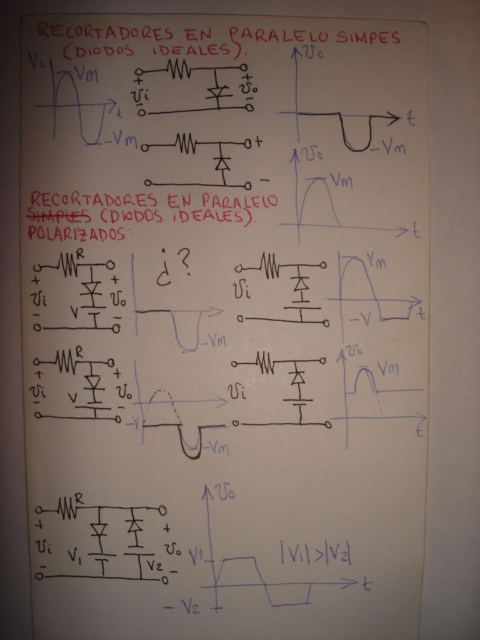 RECORTADORES EN PARALELO SIMPES
(DIODOS IDEALES).
Vi
Vm
-Vm
t
+ Vi -
+ Vo -
Vo
t
-Vm
+
-
Vo
Vm
t
RECORTADORES EN PARALELO
SIMPLES (DIODOS IDEALES).
POLARIZADOS:
R
+ Vi -
V
+ Vo -
¿?
-Vm
Vi
Vm
-V
t
R
+ Vi -
V
Vo
-
-V
-Vm
Vi
Vo
Vm
t
R
+ Vi -
V1
V2
+ Vo -
Vo
V1
-V2
|V1|>|V2|
t